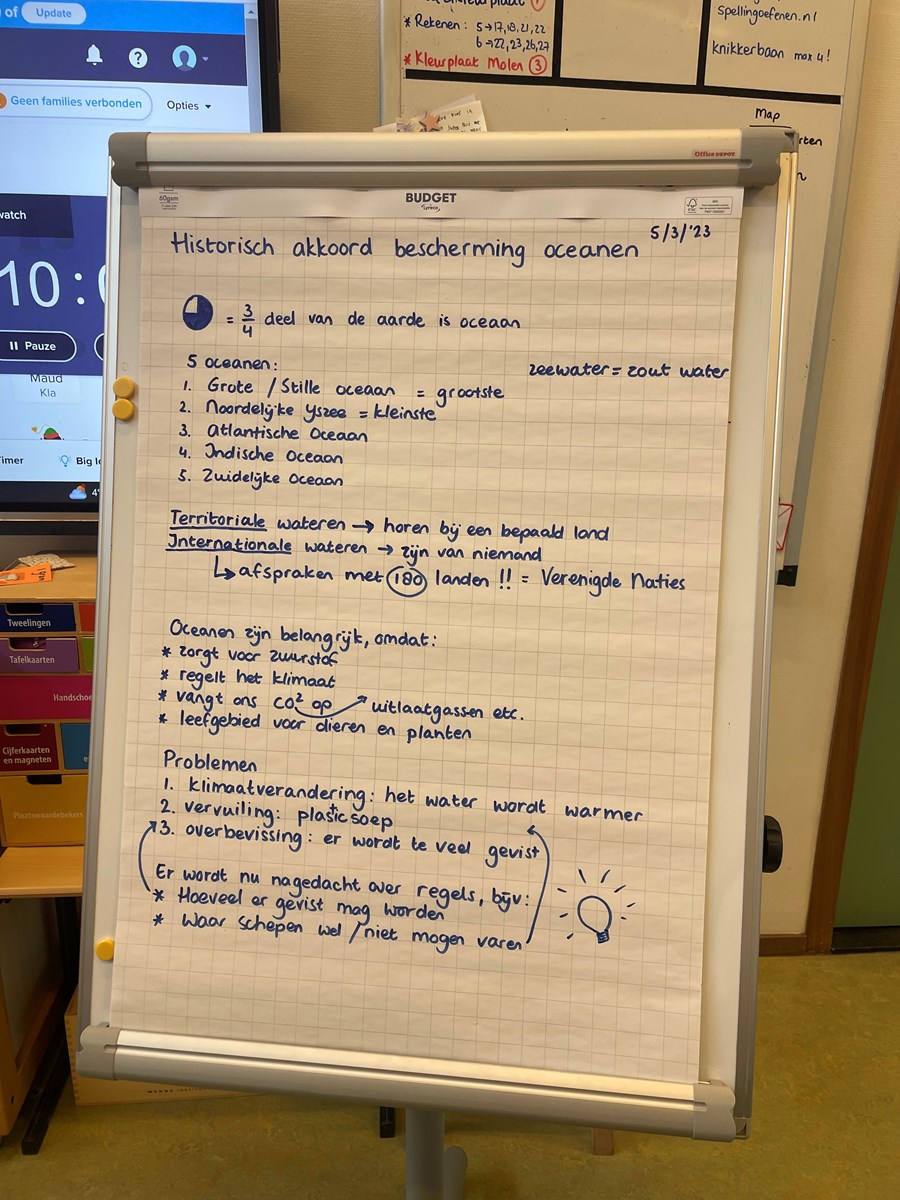 of Update
Geen families verbonden
Opties
watch
10:0
Pauze
Maud
Kla
Timer
Big le
4°
* Rekenen: 5→17,18,21,22
6→22,23,26,27
* Kleurplaat Molen ③
spellingoefenen.nl
knikkerbaan max 4!
Map
Office DEPOT
60gsm
BUDGET
FSC
Historisch akkoord bescherming oceanen
5/3/'23
= 3/4 deel van de aarde is oceaan
5 oceanen:
zeewater = zout water
1. Grote / Stille oceaan = grootste
2. Noordelijke Yszee = kleinste
3. Atlantische Oceaan
4. Indische Oceaan
5. Zuidelijke Oceaan
Territoriale wateren → horen bij een bepaald land
Internationale wateren → zijn van niemand
↳ afspraken met 180 landen !! = Verenigde Naties
Oceanen zijn belangrijk, omdat:
* zorgt voor zuurstof
* regelt het klimaat
* vangt ons CO² op → uitlaatgassen etc.
* leefgebied voor dieren en planten
Problemen
1. klimaatverandering: het water wordt warmer
2. vervuiling: plasticsoep
3. overbevissing: er wordt te veel gevist
Er wordt nu nagedacht over regels, bijv:
* Hoeveel er gevist mag worden
* Waar schepen wel / niet mogen varen
Tweelingen
Tafelkaarten
Handschoe
Cijferkaarten
en magneten
Plaatswaardebekers